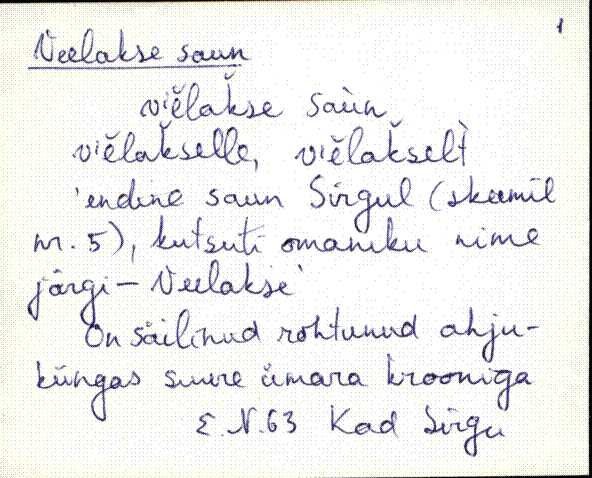 1
Veelakse saun
viĕlakše saùn
viĕlakšelle, viĕlakšelt̀
'endine saun Sirgul (skeemil
nr. 5), kutsuti omaniku nime
järgi — Veelakse'
On säilinud rohtunud ahju-
küngas suure ümara krooniga
E.N.63 Kad Sirgu